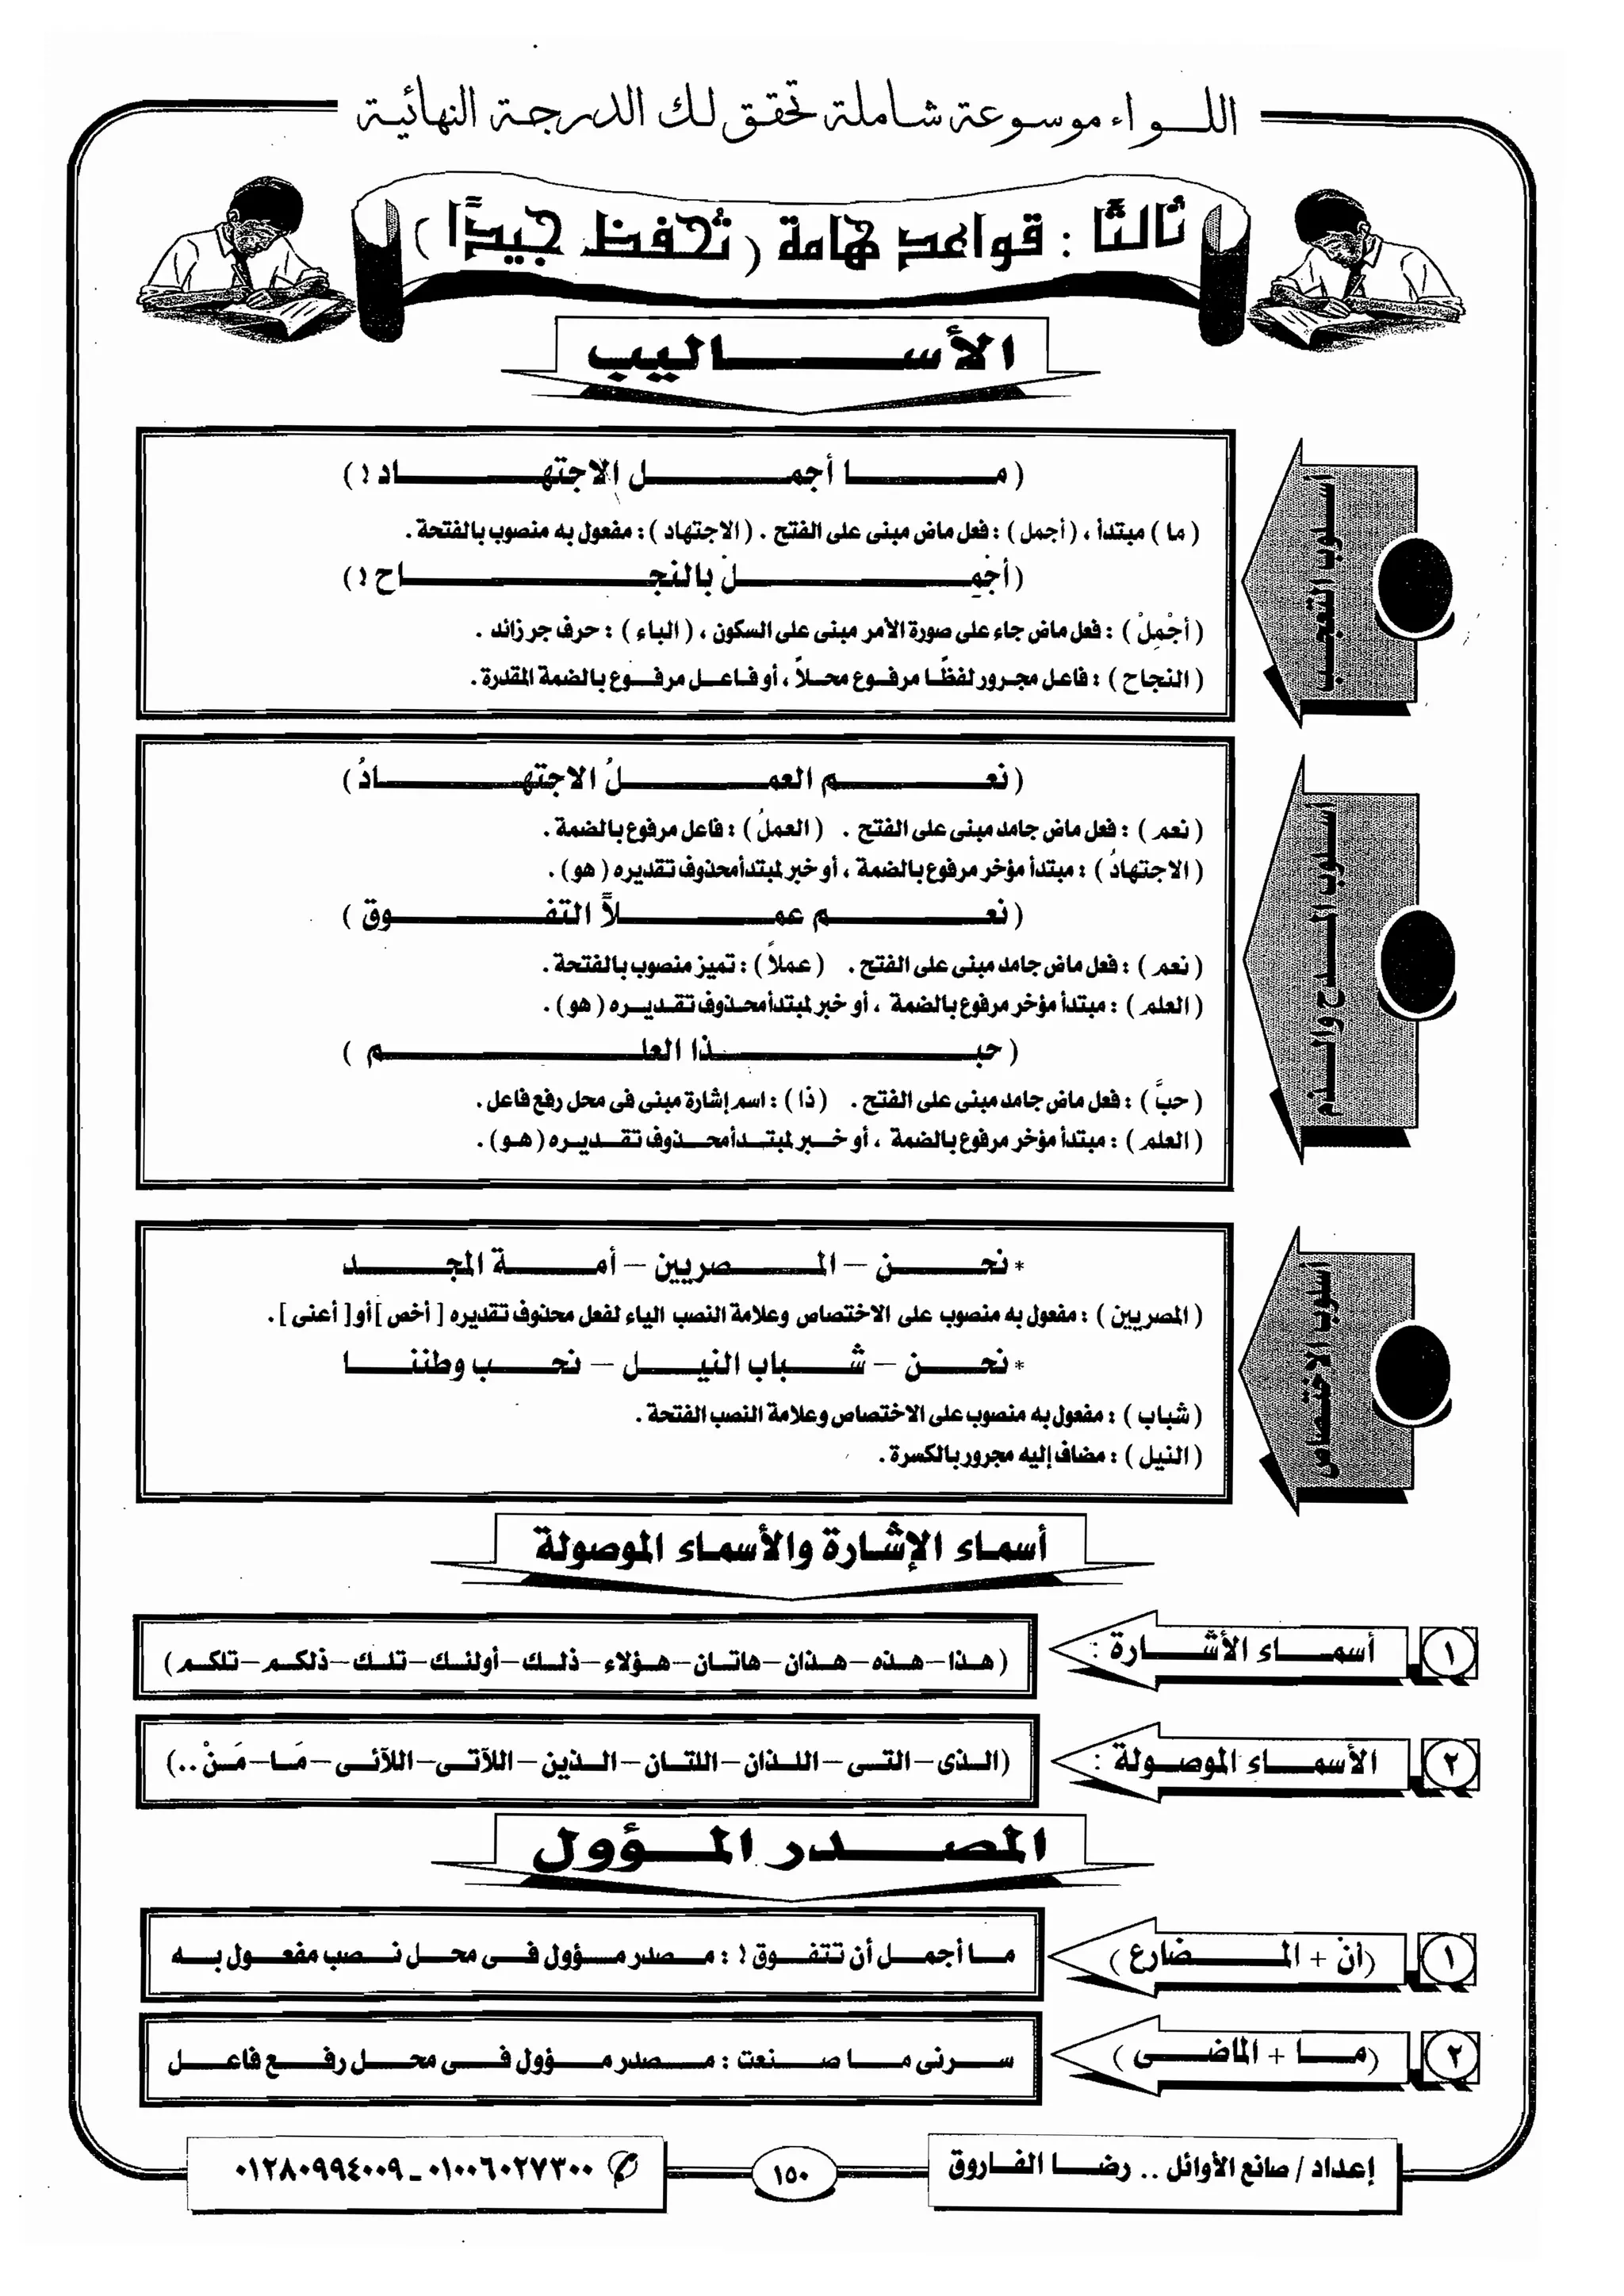 اللواء موسوعة شاملة تحقق لك الدرجة النهائية
ثالثًا : قواعد هامة ( تُحفظ جيدًا )
الأساليب
أسلوب التعجب
( ما أجمل الاجتهاد ! )
( ما ) مبتدأ ، ( أجمل ) : فعل ماض مبنى على الفتح . ( الاجتهاد ) : مفعول به منصوب بالفتحة .
( أجْمِلْ بالنجاح ! )
( أجْمِلْ ) : فعل ماض جاء على صورة الأمر مبنى على السكون ، ( الباء ) : حرف جر زائد .
( النجاح ) : فاعل مجرور لفظًا مرفوع محلاً ، أو فاعل مرفوع بالضمة المقدرة .
أسلوب المدح والذم
( نعم العملُ الاجتهادُ )
( نعم ) : فعل ماض جامد مبنى على الفتح . ( العملُ ) : فاعل مرفوع بالضمة .
( الاجتهادُ ) : مبتدأ مؤخر مرفوع بالضمة ، أو خبر لمبتدأ محذوف تقديره ( هو ) .
( نعم عملاً التفوق )
( نعم ) : فعل ماض جامد مبنى على الفتح . ( عملاً ) : تميز منصوب بالفتحة .
( العلم ) : مبتدأ مؤخر مرفوع بالضمة ، أو خبر لمبتدأ محذوف تقديره ( هو ) .
( حبذا العلم )
( حبَّ ) : فعل ماض جامد مبنى على الفتح . ( ذا ) : اسم إشارة مبنى فى محل رفع فاعل .
( العلم ) : مبتدأ مؤخر مرفوع بالضمة ، أو خبر لمبتدأ محذوف تقديره ( هو ) .
أسلوب الاختصاص
* نحن – المصريين – أمة المجد
( المصريين ) : مفعول به منصوب على الاختصاص وعلامة النصب الياء لفعل محذوف تقديره [ أخص ] أو [ أعنى ] .
* نحن – شباب النيل – نحب وطننا
( شباب ) : مفعول به منصوب على الاختصاص وعلامة النصب الفتحة .
( النيل ) : مضاف إليه مجرور بالكسرة .
أسماء الإشارة والأسماء الموصولة
١ أسماء الأشارة :
( هذا – هذه – هذان – هاتان – هؤلاء – ذلك – أولئك – تلك – ذلكم – تلكم )
٢ الأسماء الموصولة :
( الذى – التى – اللذان – اللتان – الذين – اللآتى – اللآئى – مَا – مَنْ .. )
المصدر المؤول
١ ( أنْ + المضارع )
ما أجمل أن تتفوق ! : مصدر مؤول فى محل نصب مفعول به
٢ ( ما + الماضى )
سرنى ما صنعت : مصدر مؤول فى محل رفع فاعل
إعداد / صانع الأوائل .. رضا الفاروق
١٥٠
٠١٠٠٦٠٢٧٣٠٠ ـ ٠١٢٨٠٩٩٤٠٠٩